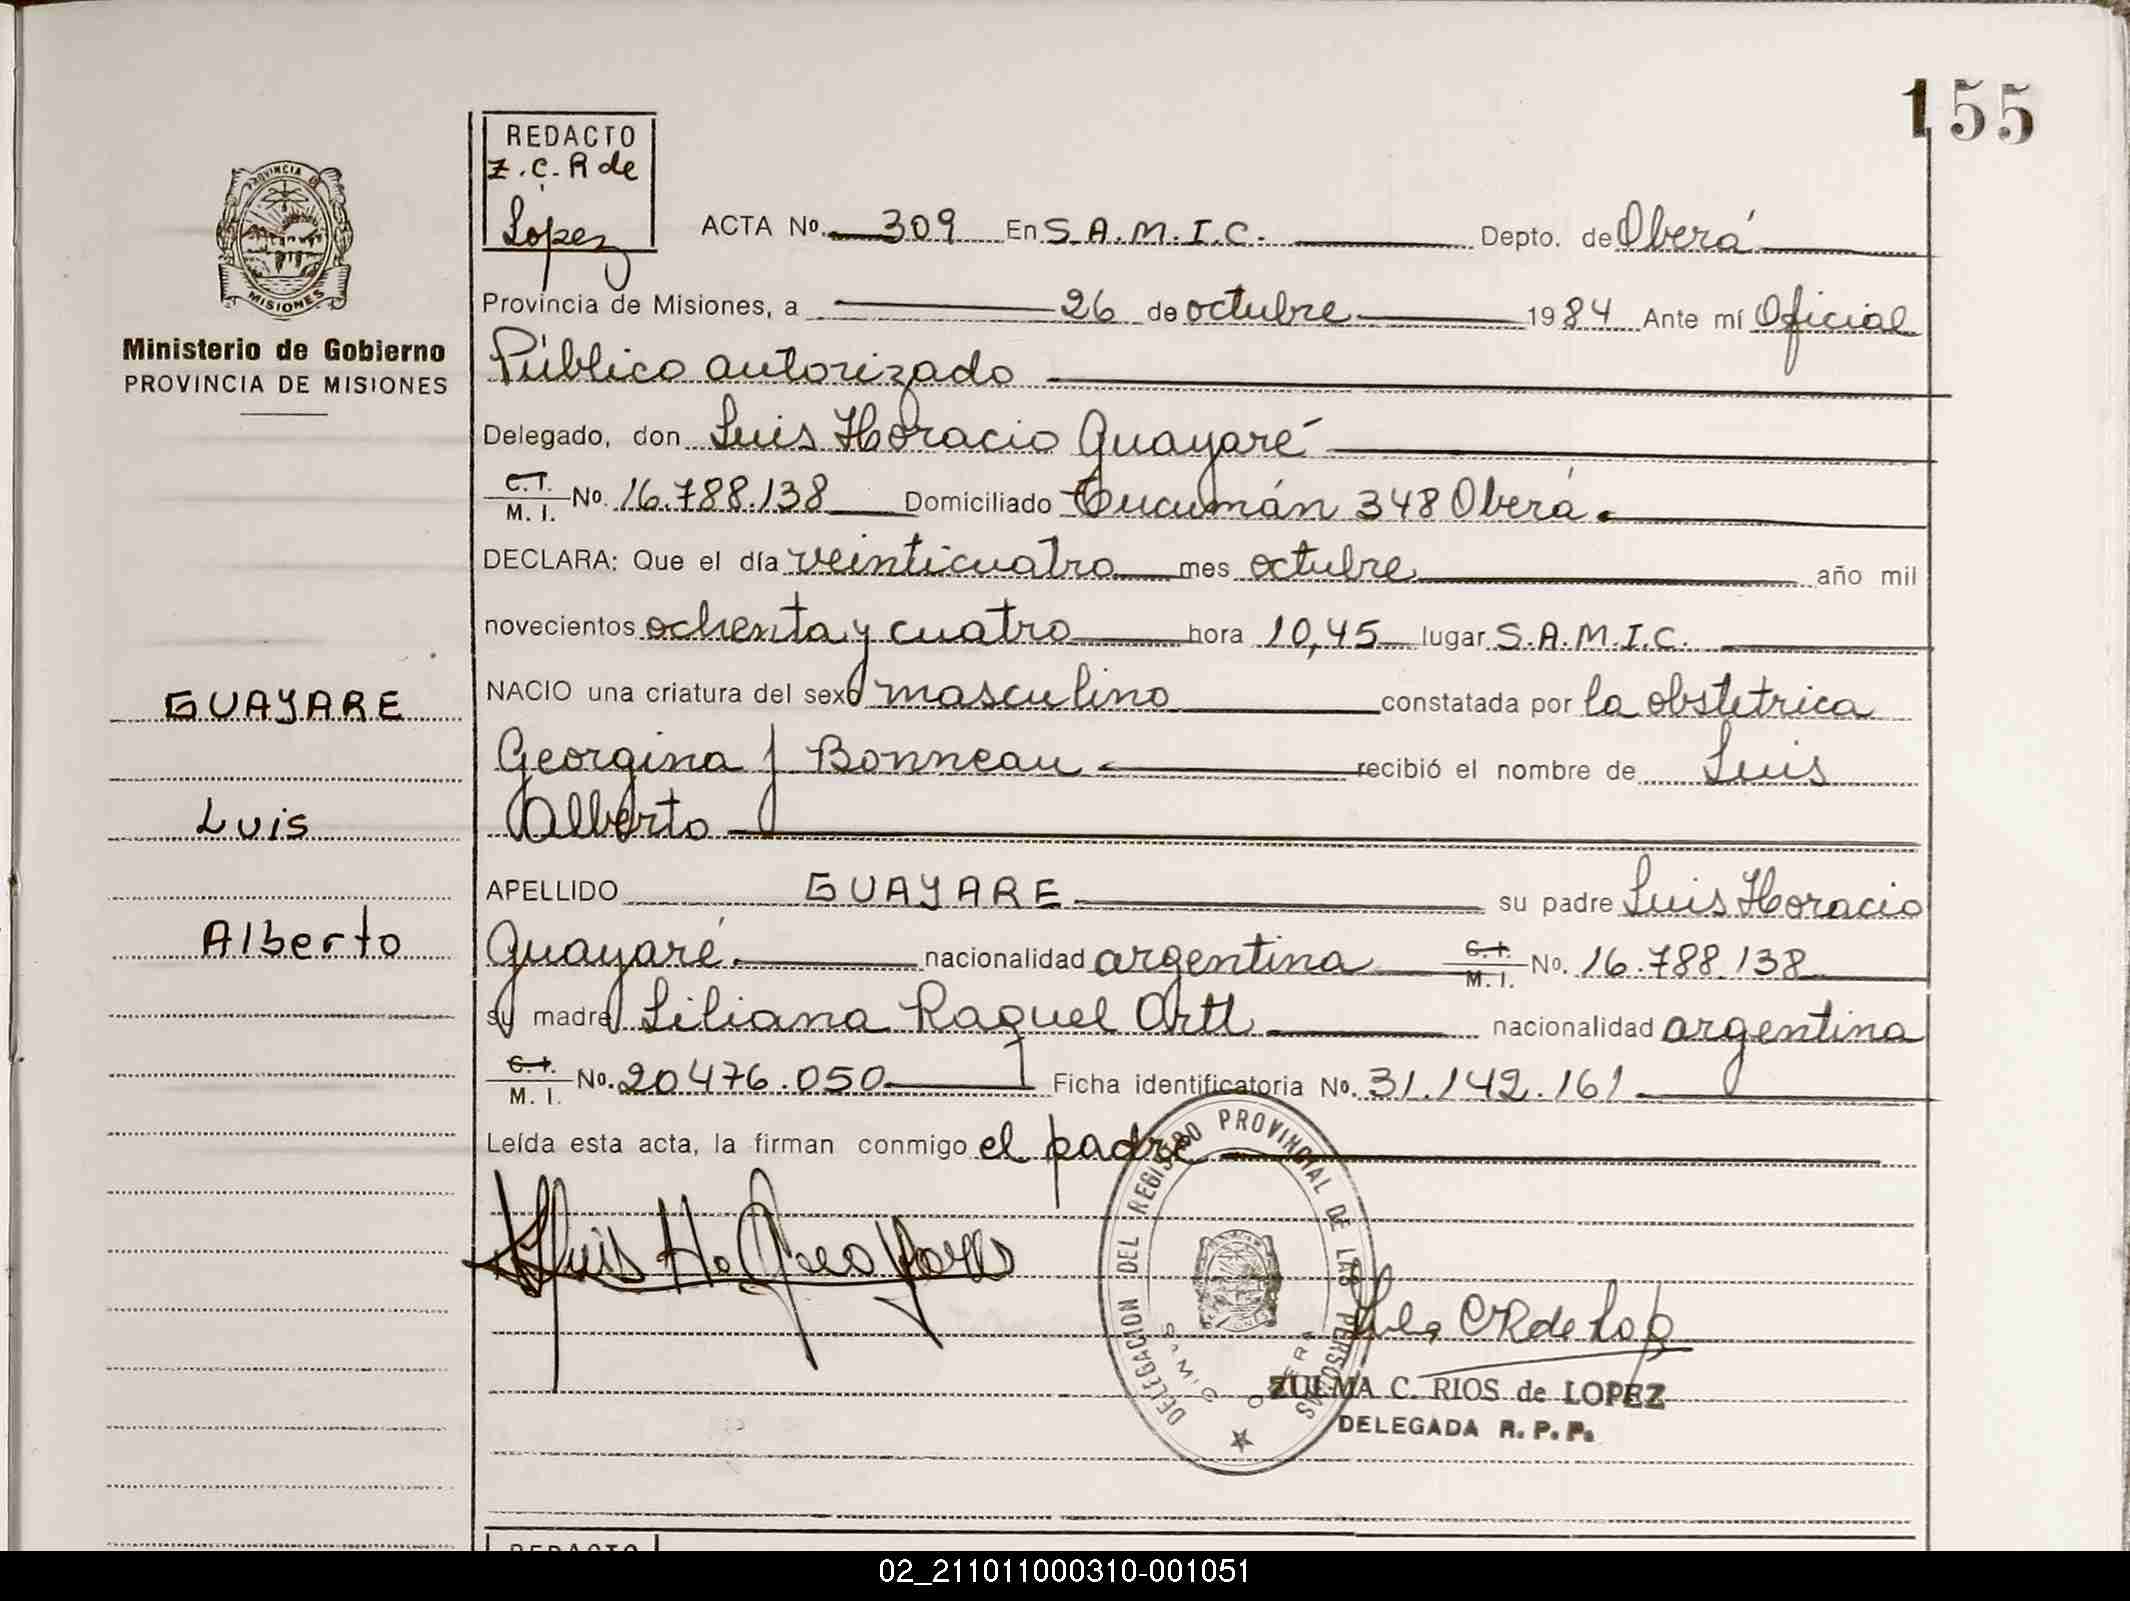 155
REDACTO
Z.C.R de
Lopez
PROVINCIA DE
MISIONES
Ministerio de Gobierno
PROVINCIA DE MISIONES
ACTA No. 309 En S.A.M.I.C. Depto. de Oberá
Provincia de Misiones, a 26 de octubre 1984 Ante mí Oficial
Público autorizado
Delegado, don Luis Horacio Guayaré
C.I. M. I. No. 16.788.138 Domiciliado Tucumán 348 Oberá.
DECLARA: Que el día veinticuatro mes octubre año mil
novecientos ochenta y cuatro hora 10,45 lugar S.A.M.I.C.
NACIO una criatura del sexo masculino constatada por la obstetrica
Georgina J Bonneau recibió el nombre de Luis
Alberto
GUAYARE
Luis
Alberto
APELLIDO GUAYARE su padre Luis Horacio
Guayaré. nacionalidad argentina C.I. M. I. No. 16.788.138
su madre Liliana Raquel Ortt nacionalidad argentina
C.I. M. I. No. 20476.050 Ficha identificatoria No. 31.142.161
Leída esta acta, la firman conmigo el padre
Luis H. Guayare
DELEGACION DEL REGISTRO PROVINCIAL DE LAS PERSONAS
SAMIC OBERA
ZULMA C. RIOS de LOPEZ
DELEGADA R. P. P.
REDACTO
02_211011000310-001051